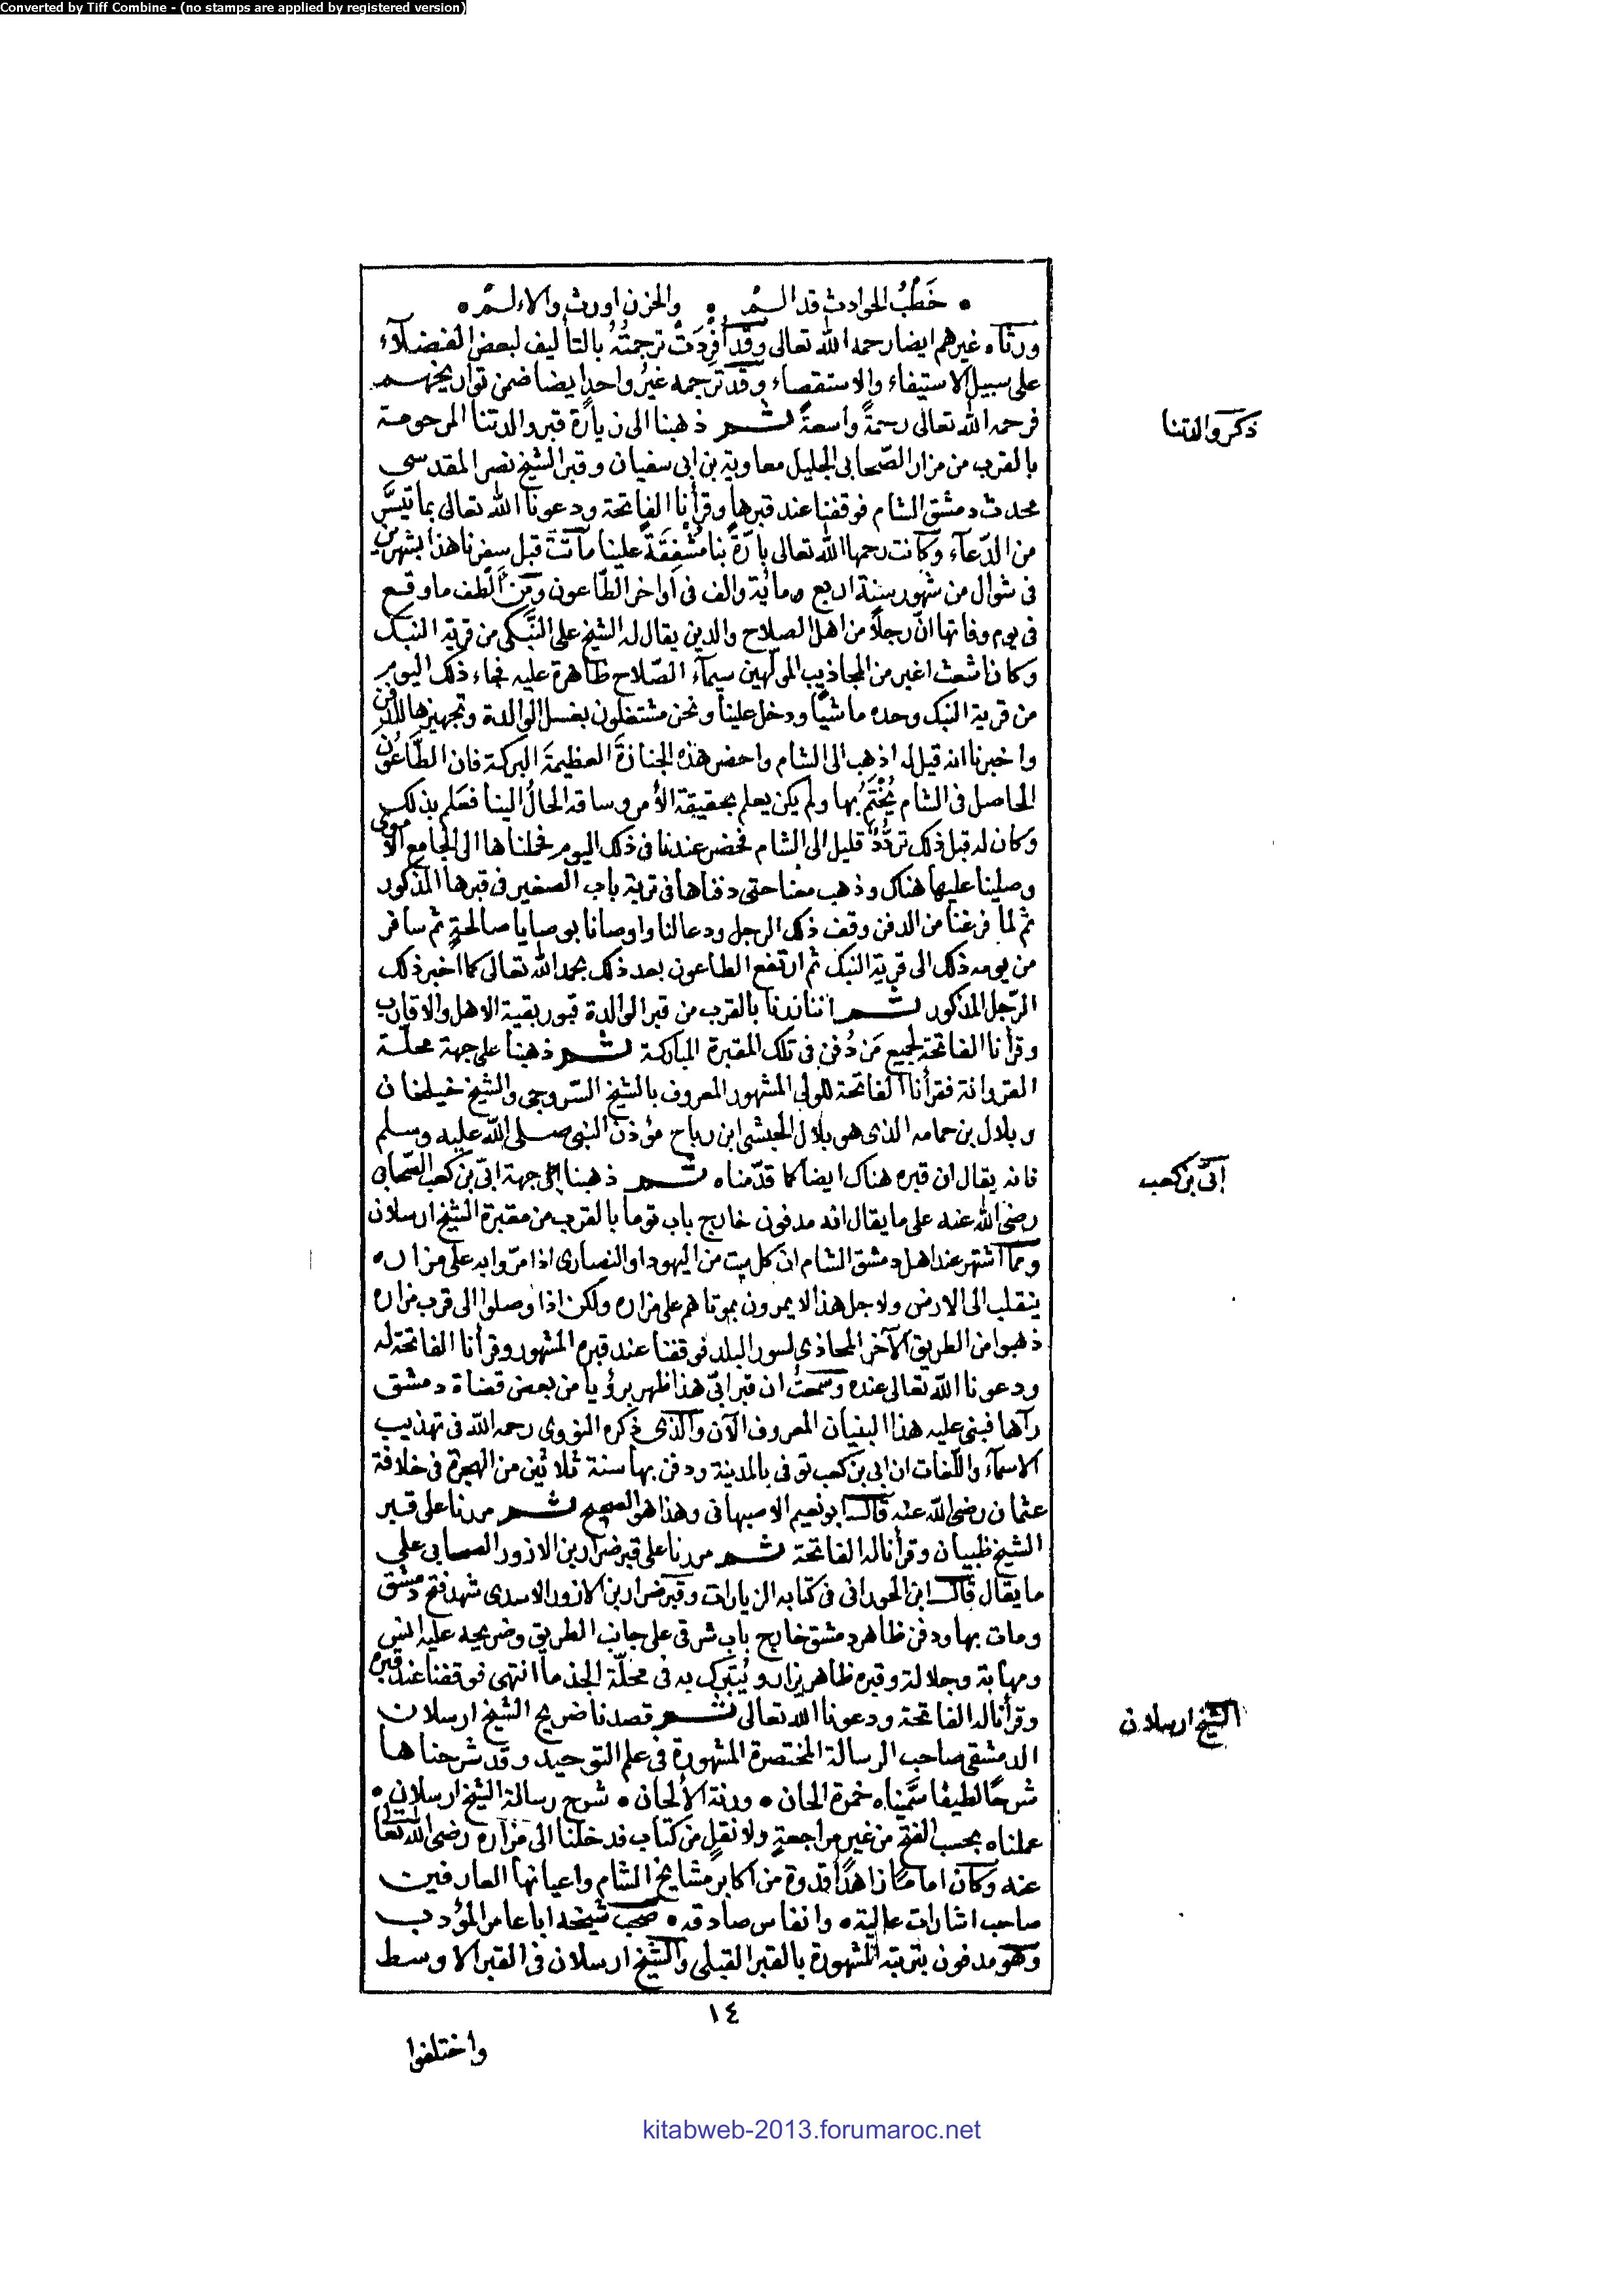 Converted by Tiff Combine - (no stamps are applied by registered version)
• خَطْبُ الحوادث قد السمْ • والحزن اورث والالمْ •
ورثاه غيرهم ايضا رحمه الله تعالى وقد أُفرِدَتْ ترجمتُهُ بالتأليف لبعض الفضلآء
على سبيل الاستيفاء والاستقصاء وقد ترجمه غيرُ واحدٍ ايضا ضمن تواريخهم
فرحمه الله تعالى رحمةً واسعةً ثم ذهبنا الى زيارة قبر والدتنا المرحومة
ذكر والدتنا
بالقرب من مزار الصّحابى الجليل معاوية بن ابى سفيان وقبر الشيخ نصر المقدسى
محدث دمشق الشام فوقفنا عند قبرها وقرأنا الفاتحة ودعونا الله تعالى بما تيسَّر
من الدّعآء وكانت رحمها الله تعالى بارّةً بنا مُشْفِقَةً علينا مآتت قبل سفرنا هذا بشهرين
فى شوال من شهور سنة اربع ومائة والف فى اواخر الطّاعون ومن الطف ما وقع
فى يوم وفاتها انّ رجلاً من اهل الصلاح والدين يقال له الشيخ على النَّبكى من قرية النبك
وكان اشعث اغبر من المجاذيب المولّهين سيمآء الصّلاح ظاهرة عليه فجاء ذلك اليوم
من قرية النبك وحده ماشيًا ودخل علينا ونحن مشتغلون بغسل الوالدة وتجهيزها للدفن
واخبرنا انه قيل له اذهب الى الشام واحضر هذه الجنازة العظيمة البركة فان الطّاعون
الحاصل فى الشام يُخْتَمُ بها ولم يكن يعلم بحقيقة الأمر وساقه الحالُ الينا فعلم بذلك
وكان له قبل ذلك تردُّدٌ قليل الى الشام فحضر عندنا فى ذلك اليوم فحملناها الى الجامع الأموى
وصلينا عليها هناك وذهب معنا حتى دفناها فى تربة باب الصغير فى قبرها المذكور
ثم لما فرغنا من الدفن وقف ذلك الرجل ودعا لنا واوصانا بوصايا صالحةٍ ثم سافر
من يومه ذلك الى قرية النبك ثم ارتفع الطاعون بعد ذلك بحمد الله تعالى كما اخبر ذلك
الرّجل المذكور ثم اننا زرنا بالقرب من قبر الوالدة قبور بقية الاهل والاقارب
وقرأنا الفاتحة لجميع مَن دُفن فى تلك المقبرة المباركة ثم ذهبنا على جهة محلّة
القروانة فقرأنا الفاتحة للولى المشهور المعروف بالشيخ السّروجى والشيخ خيلخان
وبلال بن حمامه الذى هو بلال الحبشى ابن رباح مؤذن النبى صلى الله عليه وسلم
فانه يقال ان قبره هناك ايضا كما قدّمناه ثم ذهبنا الى جهة ابىّ بن كعب الصّحابى
ابىّ بن كعب
رضى الله عنه على ما يقال انه مدفون خارج باب توما بالقرب من مقبرة الشيخ ارسلان
ومما اشتهر عند اهل دمشق الشام ان كل ميت من اليهود او النصارى اذا مرّوا به على مزاره
ينقلب الى الارض ولاجل هذا لا يمرون بموتاهم على مزاره ولكن اذا وصلوا الى قرب مزاره
ذهبوا من الطريق الآخر المحاذى لسور البلد فوقفنا عند قبره المشهور وقرأنا الفاتحة له
ودعونا الله تعالى عنده وسمعتُ ان قبر ابىّ هذا ظهر برؤيا من بعض قضاة دمشق
رآها فبنى عليه هذا البنيان المعروف الآن والذى ذكره النووى رحمه الله فى تهذيب
الاسمآء واللّغات ان ابى بن كعب توفى بالمدينة ودفن بها سنة ثلاثين من الهجرة فى خلافة
عثمان رضى الله عنه قال ابو نعيم الاصبهانى وهذا هو الصحيح ثم مررنا على قبر
الشيخ ظبيان وقرأنا له الفاتحة ثم مررنا على قبر ضرار بن الازور الصحابى على
ما يقال قال ابن الحورانى فى كتابه الزيارات وقبر ضرار بن الازور الاسدى شهد فتح دمشق
ومات بها ودفن ظاهر دمشق خارج باب شرقى على جانب الطريق وضريحه عليه انس
ومهابة وجلالة وقبره ظاهر يزار ويُتبرّك به فى محلّة الجذما انتهى فوقفنا عند قبره
وقرأنا له الفاتحة ودعونا الله تعالى ثم قصدنا ضريح الشيخ ارسلان
الشيخ ارسلان
الدمشقى صاحب الرسالة المختصرة المشهورة فى علم التوحيد وقد شرحناها
شرحًا لطيفا سمَّيناه خمرة الحان • ورنة الألحان • شرح رسالة الشيخ ارسلان •
عملناه بحسب الفتح من غير مراجعةٍ ولا نقلٍ من كتاب فدخلنا الى مزاره رضى الله تعالى
عنه وكان اماماً زاهدًا قدوة من اكابر مشايخ الشام واعيانها العارفين
صاحب اشارات عالية • وانفاس صادقه • صحب شيخه ابا عامر المؤدب
وهو مدفون بتربته المشهورة بالقبر القبلى والشيخ ارسلان فى القبر الاوسط
١٤
واختلفوا
kitabweb-2013.forumaroc.net